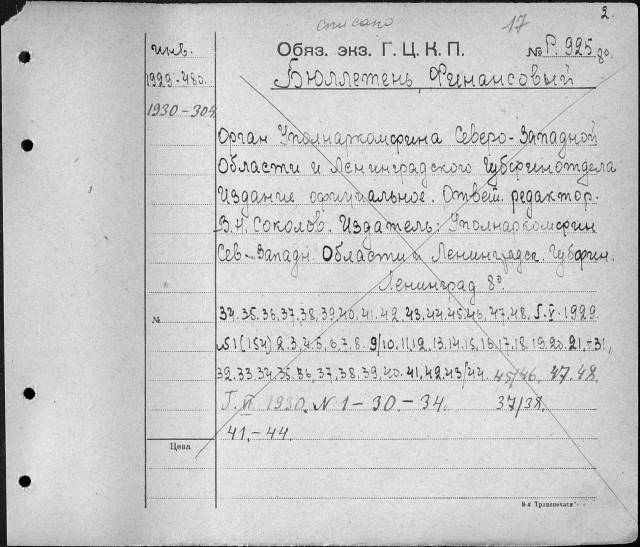 списано 17 2.
инв. Обяз. экз. Г. Ц. К. П. № Р. 925 80
1929-480. Бюллетень Финансовый
1930-304
Орган Уполнаркомфина Северо-Западной
Области и Ленинградского Губфинотдела
Издание официальное. Ответ. редактор.
В. Н. Соколов. Издатель: Уполнаркомфин
Сев-Западн. Области и Ленинградск. Губфин.
Ленинград 8º
№ 34. 35. 36, 37, 38, 39, 40, 41. 42 43, 44, 45, 46, 47, 48, Г. V. 1929.
№1 (154) 2. 3, 4, 5, 6, 7. 8. 9/10, 11, 12, 13. 14. 15, 16, 17. 18, 19. 20. 21, -31,
32. 33. 34. 35. 36, 37, 38, 39, 40. 41, 42, 43/44. 45/46, 47. 48.
Г. VI 1930. N 1-30.-34. 37/38,
41.-44.
Цена
8-я "Транспечати"